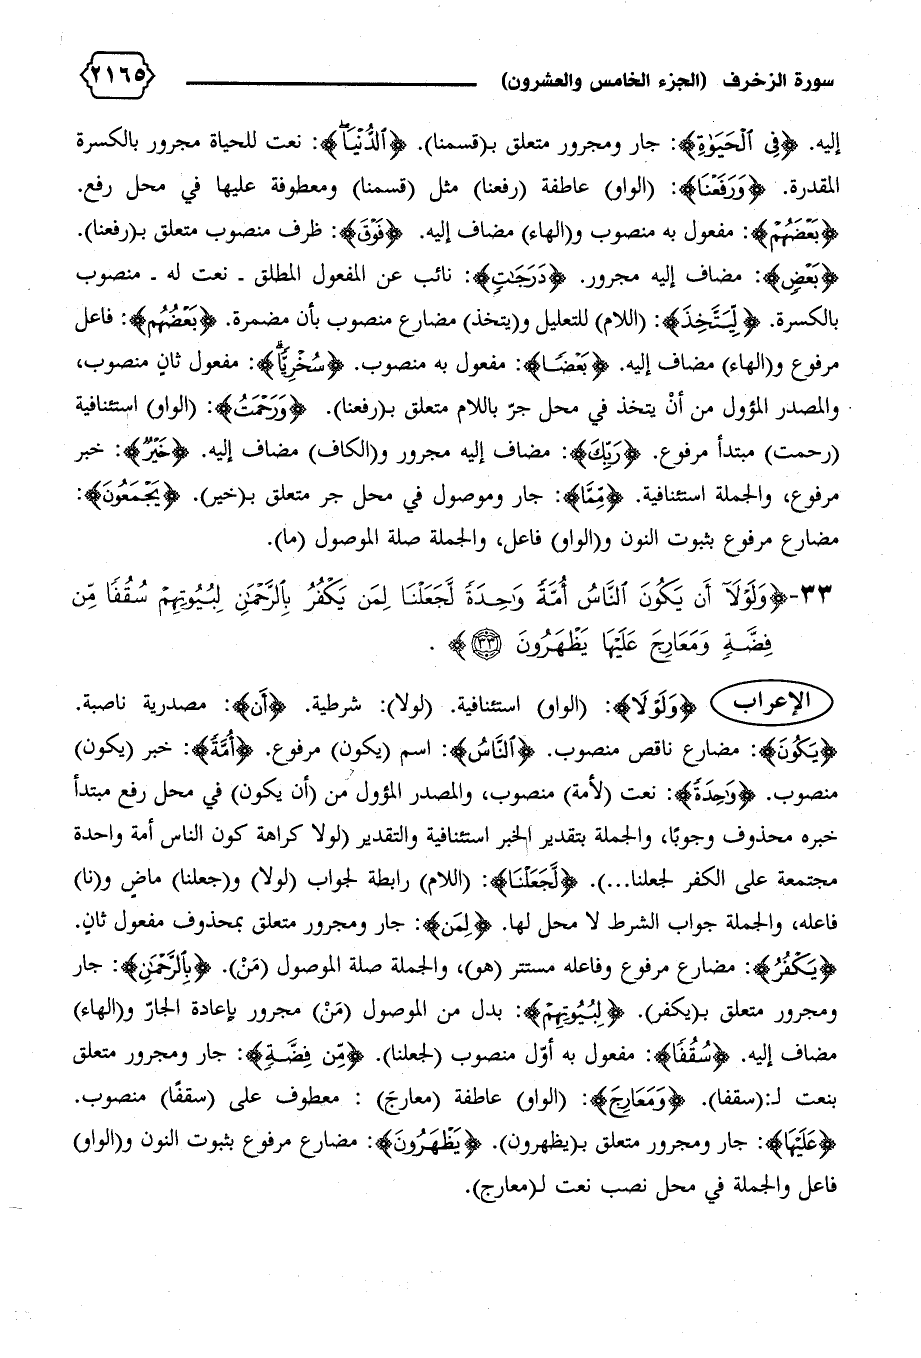 سورة الزخرف (الجزء الخامس والعشرون) ٢١٦٥
إليه. ﴿فِي ٱلْحَيَوٰةِ﴾: جار ومجرور متعلق بـ(قسمنا). ﴿ٱلدُّنْيَاۚ﴾: نعت للحياة مجرور بالكسرة
المقدرة. ﴿وَرَفَعْنَا﴾: (الواو) عاطفة (رفعنا) مثل (قسمنا) ومعطوفة عليها في محل رفع.
﴿بَعْضَهُمْ﴾: مفعول به منصوب و(الهاء) مضاف إليه. ﴿فَوْقَ﴾: ظرف منصوب متعلق بـ(رفعنا).
﴿بَعْضٍ﴾: مضاف إليه مجرور. ﴿دَرَجَٰتٍ﴾: نائب عن المفعول المطلق ـ نعت له ـ منصوب
بالكسرة. ﴿لِّيَتَّخِذَ﴾: (اللام) للتعليل و(يتخذ) مضارع منصوب بأن مضمرة. ﴿بَعْضُهُم﴾: فاعل
مرفوع و(الهاء) مضاف إليه. ﴿بَعْضًا﴾: مفعول به منصوب. ﴿سُخْرِيًّاۗ﴾: مفعول ثانٍ منصوب،
والمصدر المؤول من أنْ يتخذ في محل جرّ باللام متعلق بـ(رفعنا). ﴿وَرَحْمَتُ﴾: (الواو) استئنافية
(رحمت) مبتدأ مرفوع. ﴿رَبِّكَ﴾: مضاف إليه مجرور و(الكاف) مضاف إليه. ﴿خَيْرٌ﴾: خبر
مرفوع، والجملة استئنافية. ﴿مِّمَّا﴾: جار وموصول في محل جر متعلق بـ(خير). ﴿يَجْمَعُونَ﴾:
مضارع مرفوع بثبوت النون و(الواو) فاعل، والجملة صلة الموصول (ما).
٣٣-﴿وَلَوْلَآ أَن يَكُونَ ٱلنَّاسُ أُمَّةً وَٰحِدَةً لَّجَعَلْنَا لِمَن يَكْفُرُ بِٱلرَّحْمَٰنِ لِبُيُوتِهِمْ سُقُفًا مِّن
فِضَّةٍ وَمَعَارِجَ عَلَيْهَا يَظْهَرُونَ ٣٣﴾ .
الإعراب ﴿وَلَوْلَآ﴾: (الواو) استئنافية. (لولا): شرطية. ﴿أَن﴾: مصدرية ناصبة.
﴿يَكُونَ﴾: مضارع ناقص منصوب. ﴿ٱلنَّاسُ﴾: اسم (يكون) مرفوع. ﴿أُمَّةً﴾: خبر (يكون)
منصوب. ﴿وَٰحِدَةً﴾: نعت (لأمة) منصوب، والمصدر المؤول من (أن يكون) في محل رفع مبتدأ
خبره محذوف وجوبًا، والجملة بتقدير الخبر استئنافية والتقدير (لولا كراهة كون الناس أمة واحدة
مجتمعة على الكفر لجعلنا...). ﴿لَّجَعَلْنَا﴾: (اللام) رابطة لجواب (لولا) و(جعلنا) ماضٍ و(نا)
فاعله، والجملة جواب الشرط لا محل لها. ﴿لِمَن﴾: جار ومجرور متعلق بمحذوف مفعول ثانٍ.
﴿يَكْفُرُ﴾: مضارع مرفوع وفاعله مستتر (هو)، والجملة صلة الموصول (مَنْ). ﴿بِٱلرَّحْمَٰنِ﴾: جار
ومجرور متعلق بـ(يكفر). ﴿لِبُيُوتِهِمْ﴾: بدل من الموصول (مَنْ) مجرور بإعادة الجارّ و(الهاء)
مضاف إليه. ﴿سُقُفًا﴾: مفعول به أوّل منصوب (لجعلنا). ﴿مِّن فِضَّةٍ﴾: جار ومجرور متعلق
بنعت لـ:(سقفا). ﴿وَمَعَارِجَ﴾: (الواو) عاطفة (معارجَ) : معطوف على (سقفًا) منصوب.
﴿عَلَيْهَا﴾: جار ومجرور متعلق بـ(يظهرون). ﴿يَظْهَرُونَ﴾: مضارع مرفوع بثبوت النون و(الواو)
فاعل والجملة في محل نصب نعت لـ(معارج).